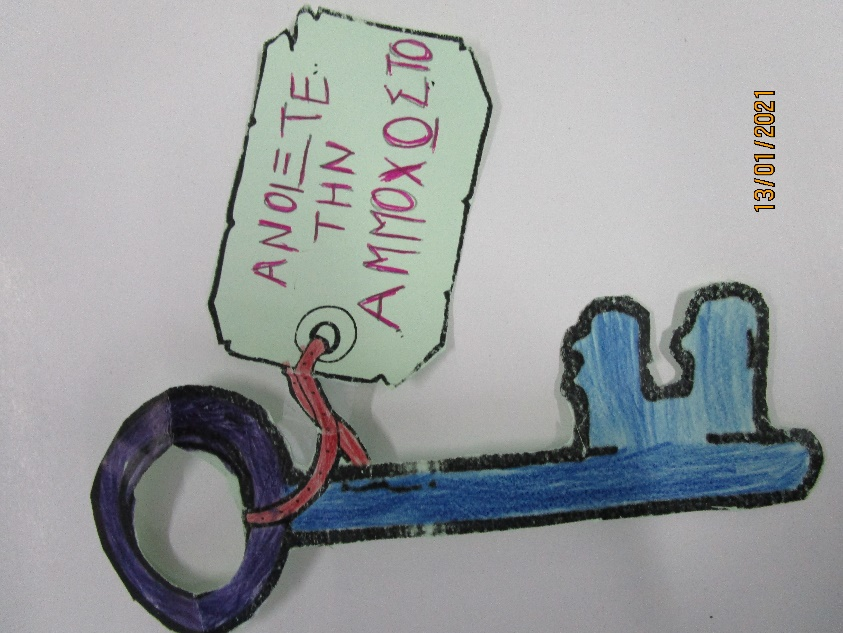 ΑΝΟΙΞΤΕ..
ΤΗΝ
ΑΜΜΟΧΩΣΤΟ
13/01/2021